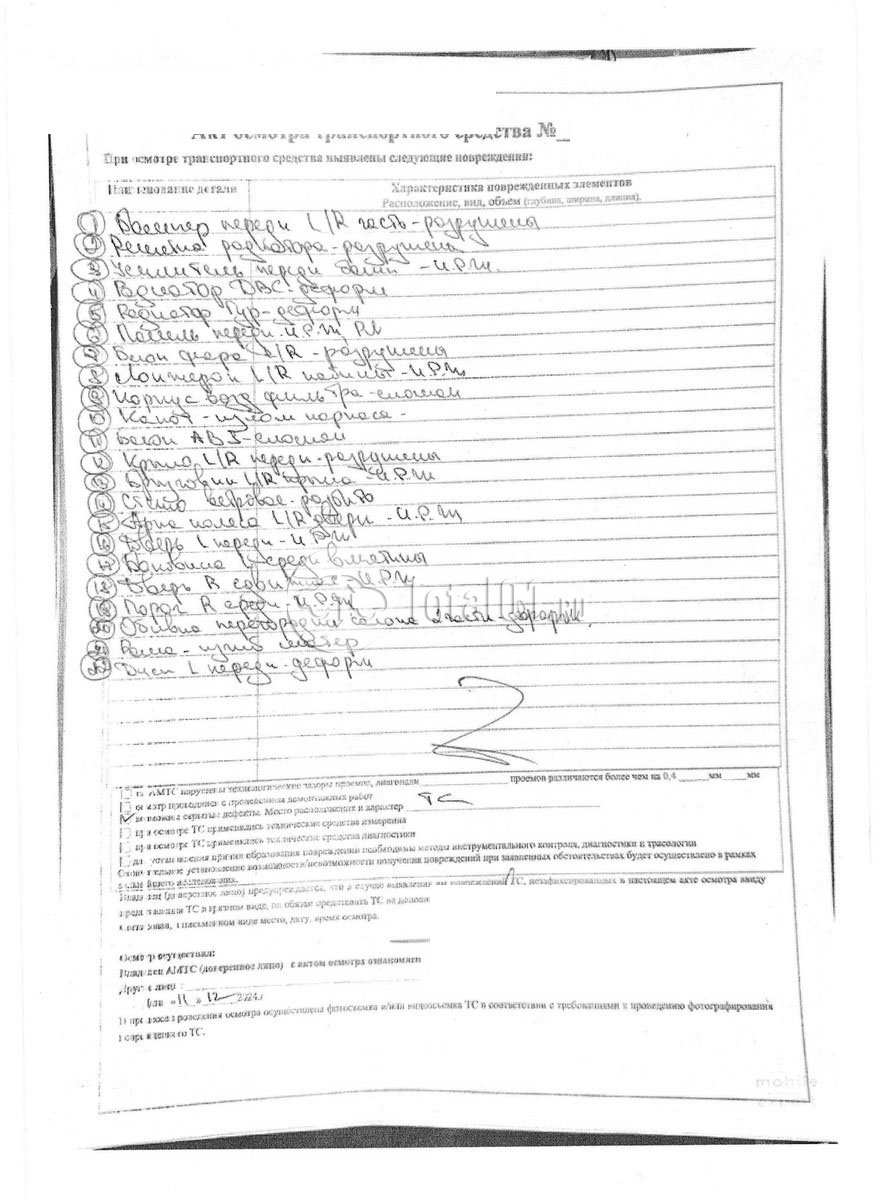 Акт осмотра транспортного средства №_
При осмотре транспортного средства выявлены следующие повреждения:
Наименование детали
Характеристика поврежденных элементов
Расположение, вид, объем (глубина, ширина, длина).
Бампер передн L/R часть-разрушены
Решетка радиатора-разрушена
Усилитель передн балки -И.Р.Ж.
Радиатор ДВС-деформ
Радиатор Гур-деформ
Панель передн-И.Р.Ж
Блок фара L/R-разрушены
Лонжерон L/R -И.Р.Ж
Корпус возд фильтра-сломан
Капот-излом каркаса-
Блок ABS-сломан
Крыло L/R передн-разрушены
L/R крыла-И.Р.Ж
Стекло ветровое-разбито
Арка колеса L/R двери-И.Р.Ж
Дверь L передн-И.Р.Ж
Боковина вмятины
Дверь R -И.Р.Ж
Порог R средн И.Р.Ж
TotalOt .ru
Обивка перегородки салона части-деформ.
Рама-изгиб
Диск L передн-деформ
АМТС нарушены технологические зазоры проемов, диагонали проемов различаются более чем на 0,4 мм мм
осмотр проводился с проведением демонтажных работ
возможны скрытые дефекты. Место расположения и характер ТС
при осмотре ТС применялись технические средства измерения
при осмотре ТС применялись технические средства диагностики
для установления причин образования повреждений необходимы методы инструментального контроля, диагностики и трасологии
Окончательное установление возможности/невозможности получения повреждений при заявленных обстоятельствах будет осуществлено в рамках
дальнейшего исследования.
Владелец (доверенное лицо) предупреждается, что в случае выявления им повреждений ТС, незафиксированных в настоящем акте осмотра ввиду
представления ТС в грязном виде, он обязан представить ТС на
Согласовав, в письменном виде место, дату, время осмотра.
Осмотр осуществил:
Владелец АМТС (доверенное лицо) с актом осмотра ознакомлен
Другие лица:
«11» 12 2024г
В процессе проведения осмотра осуществлена фотосъемка и/или видеосъемка ТС в соответствии с требованиями к проведению фотографирования
поврежденного ТС.